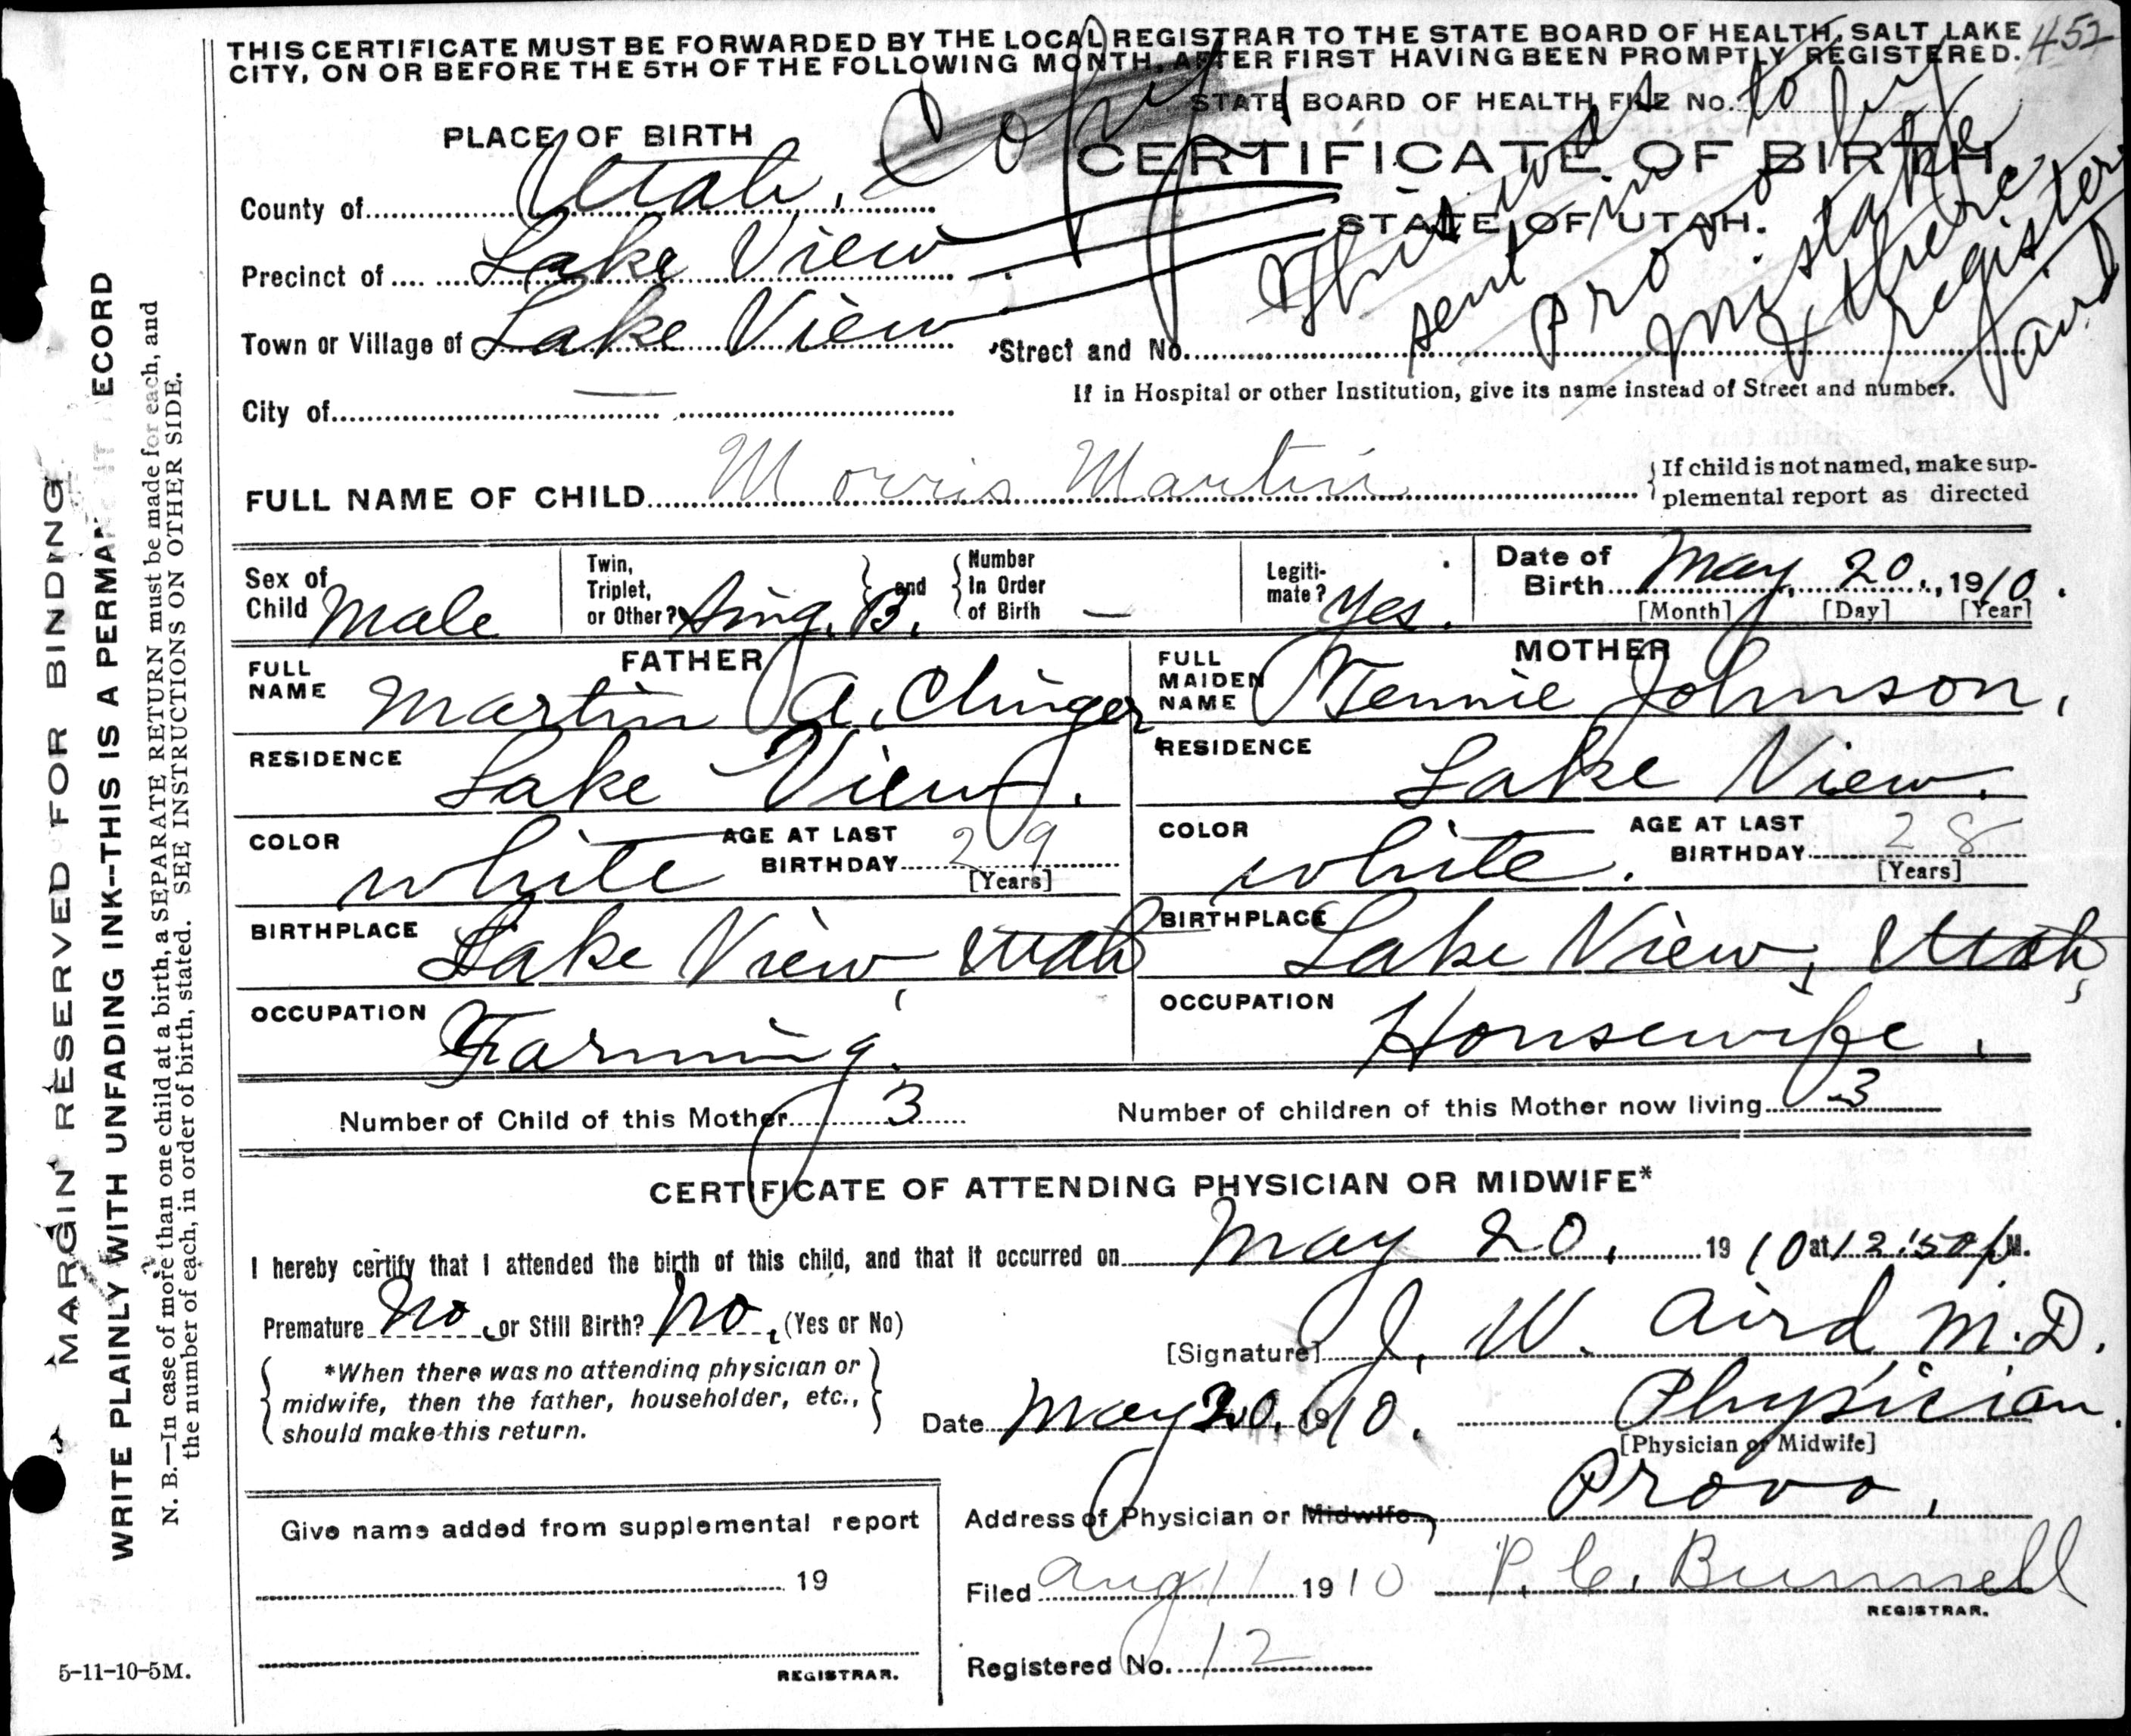 THIS CERTIFICATE MUST BE FORWARDED BY THE LOCAL REGISTRAR TO THE STATE BOARD OF HEALTH, SALT LAKE
CITY, ON OR BEFORE THE 5TH OF THE FOLLOWING MONTH, AFTER FIRST HAVING BEEN PROMPTLY REGISTERED.
452
STATE BOARD OF HEALTH FILE No.
Copy
This was sent in to Provo by mistake & there register
Aird
PLACE OF BIRTH
CERTIFICATE OF BIRTH
STATE OF UTAH.
County of Utah,
Precinct of Lake View
Town or Village of Lake View
Street and No.
City of —
If in Hospital or other Institution, give its name instead of Street and number.
FULL NAME OF CHILD Morris Martin
If child is not named, make sup-
plemental report as directed
Sex of Child Male
Twin, Triplet, or Other? Sing. B. and Number In Order of Birth —
Legiti-mate? Yes.
Date of Birth May, 20, 1910.
[Month] [Day] [Year]
FATHER
FULL NAME Martin A. Clinger
RESIDENCE Lake View.
COLOR white AGE AT LAST BIRTHDAY 29
[Years]
BIRTHPLACE Lake View, Utah
OCCUPATION Farming.
MOTHER
FULL MAIDEN NAME Tennie Johnson,
RESIDENCE Lake View.
COLOR white. AGE AT LAST BIRTHDAY 28
[Years]
BIRTHPLACE Lake View, Utah,
OCCUPATION Housewife.
Number of Child of this Mother 3 Number of children of this Mother now living 3
CERTIFICATE OF ATTENDING PHYSICIAN OR MIDWIFE*
I hereby certify that I attended the birth of this child, and that it occurred on May 20, 1910 at 12:50 p M.
Premature No, or Still Birth? No, (Yes or No)
*When there was no attending physician or
midwife, then the father, householder, etc.,
should make this return.
[Signature] J. W. Aird M.D.
Date May 20, 1910. Physician.
[Physician or Midwife]
Address of Physician or Midwife Provo.
Give name added from supplemental report
19
REGISTRAR.
Filed Aug 11 1910 P. C. Bunnell
REGISTRAR.
Registered No. 12
MARGIN RESERVED FOR BINDING
WRITE PLAINLY WITH UNFADING INK--THIS IS A PERMA ECORD
N. B.—In case of more than one child at a birth, a SEPARATE RETURN must be made for each, and
the number of each, in order of birth, stated. SEE INSTRUCTIONS ON OTHER SIDE.
5-11-10-5M.